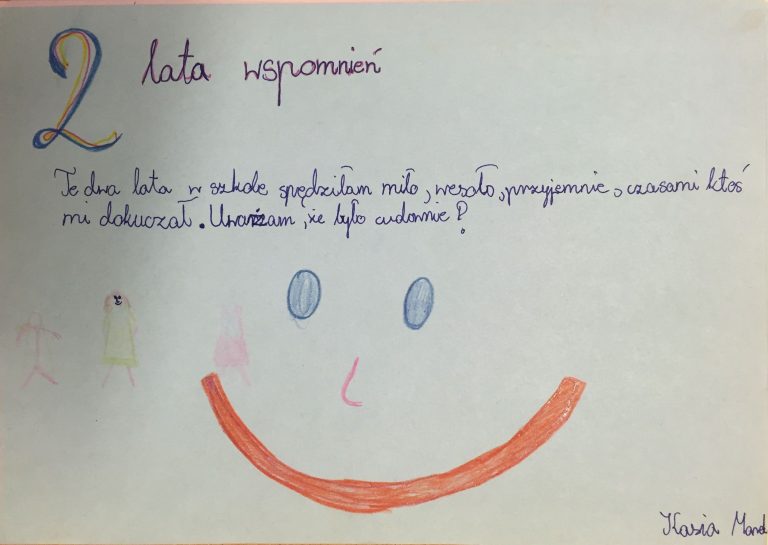 2 lata wspomnień
Te dwa lata w szkole spędziłam miło, wesoło, przyjemnie, czasami ktoś
mi dokuczał. Uważam, że było cudownie!
Kasia